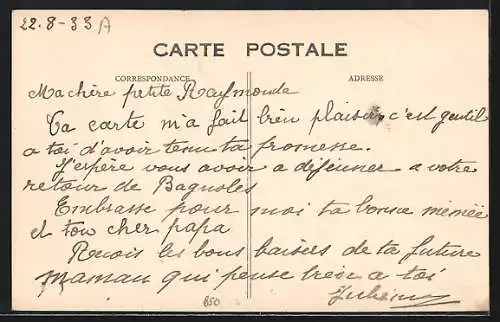 22-8-33 A
CARTE POSTALE
CORRESPONDANCE
ADRESSE
Ma chère petite Raymonde
Ta carte m'a fait bien plaisir, c'est gentil
a toi d'avoir tenu ta promesse.
J'espère vous avoir a déjeuner a votre
retour de Bagnoles
Embrasse pour moi ta bonne mémée
et ton cher papa
Reçois les bons baisers de ta future
maman qui pense bien a toi
850